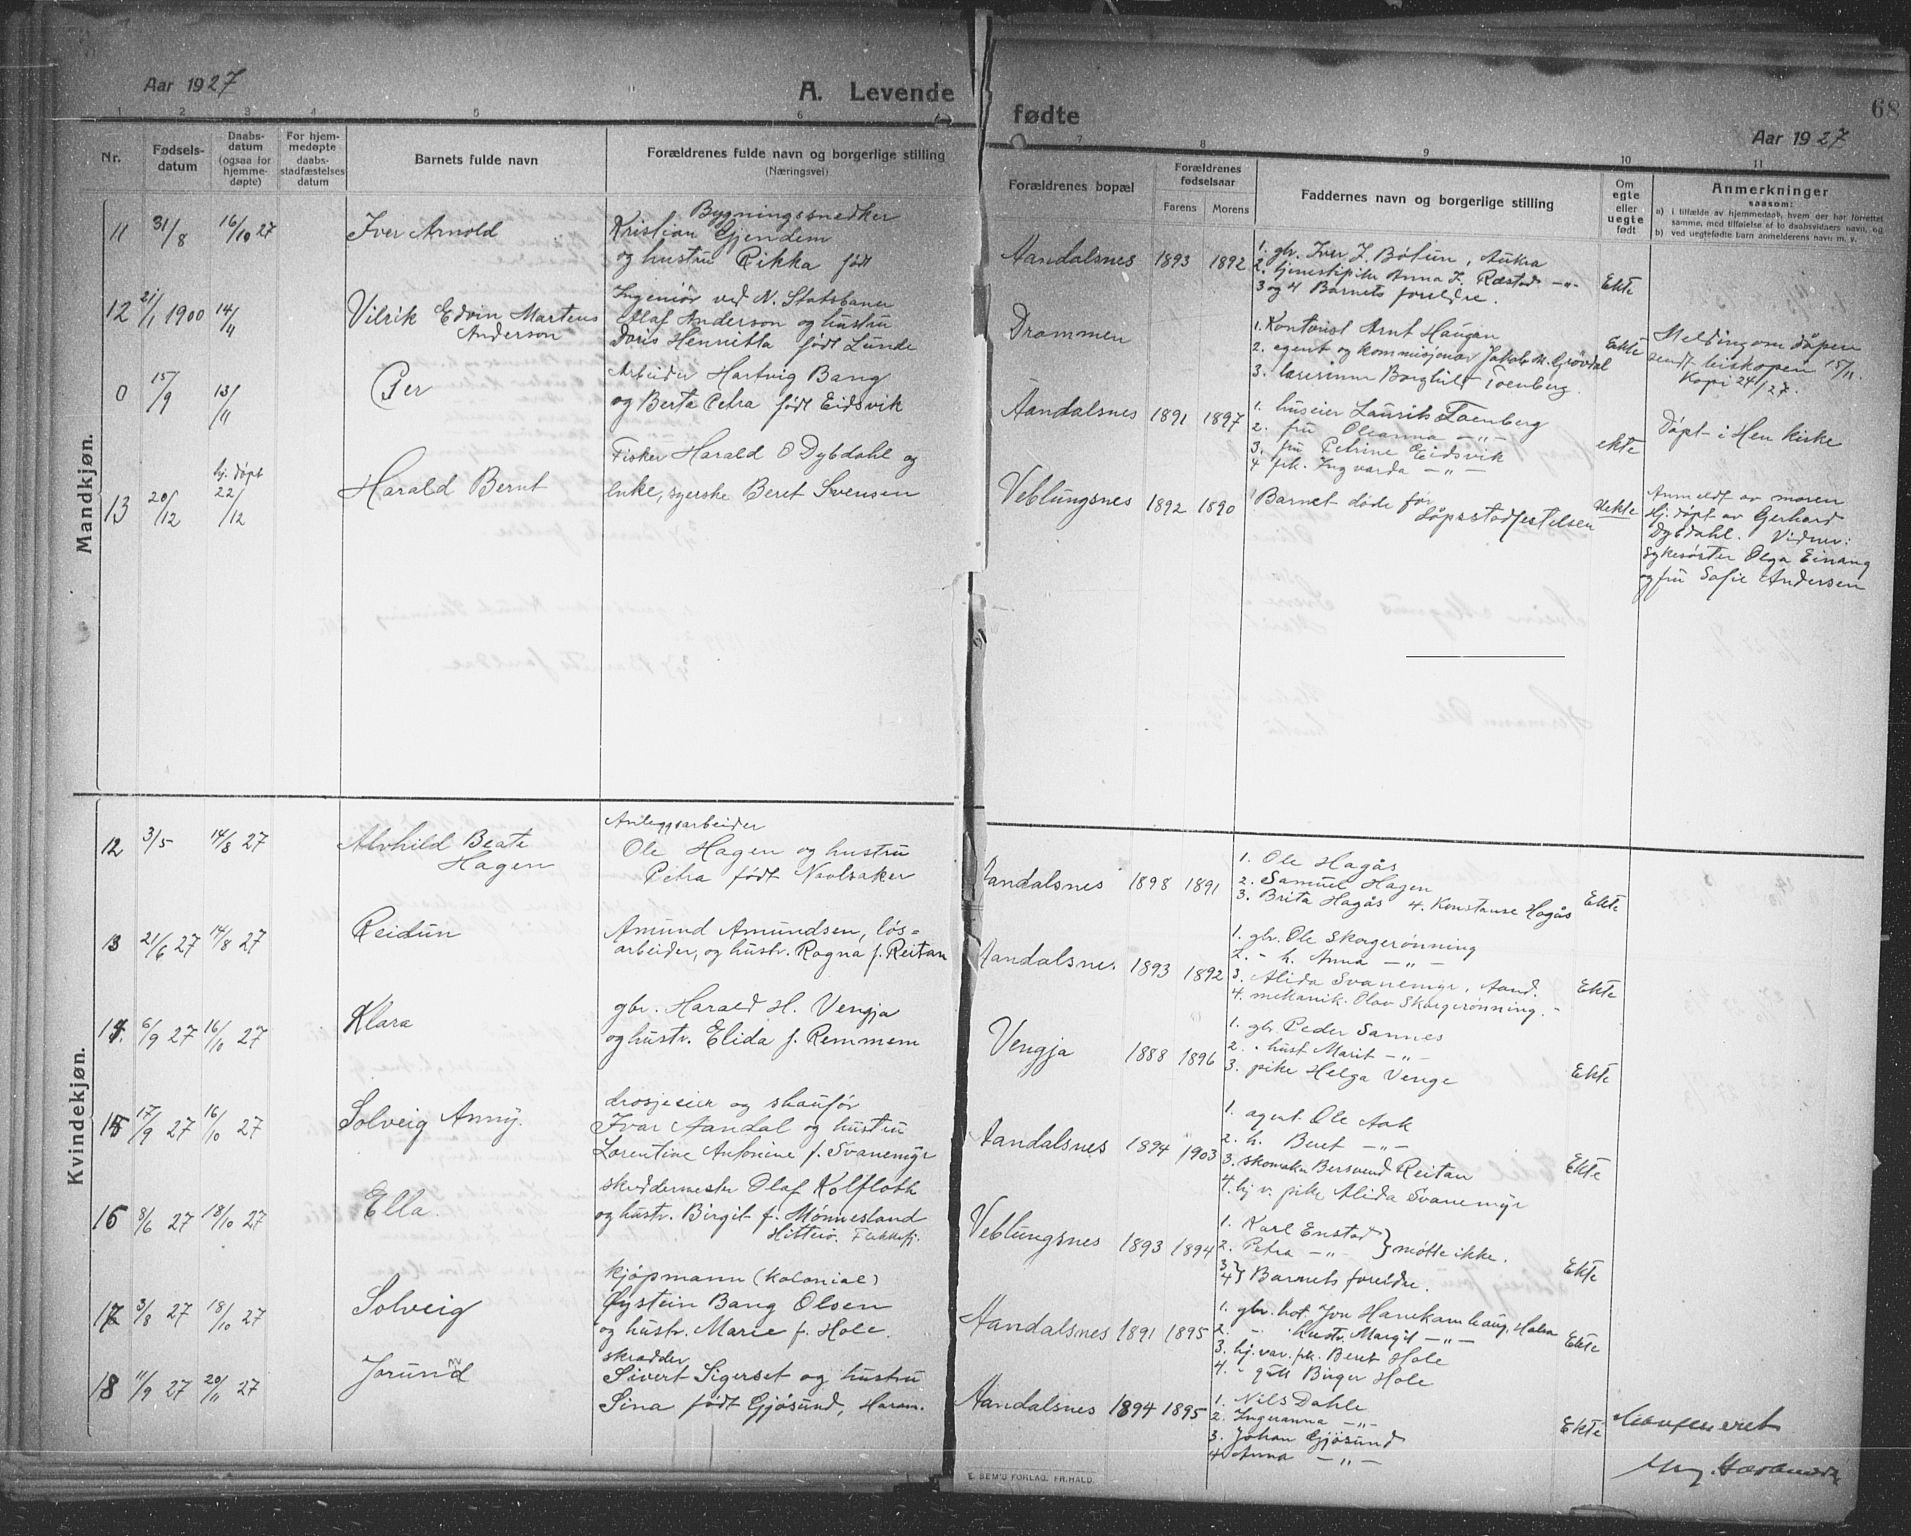 Aar 1927
A. Levende
1 2 3 4 5 6
Nr.
Fødsels-
datum
Daabs-
datum
(ogsaa for
hjemme-
døpte)
For hjem-
medøpte
daabs-
stadfæstelses
datum
Barnets fulde navn
Forældrenes fulde navn og borgerlige stilling
(Næringsvei)
Mandkjøn.
11 31/8 16/10 27 Iver Arnold
Bygningssnedker
Kristian Gjendem
og hustru Rikka født
12 21/1 1900 14/4 Vilrik Edvin Martens
Anderson
Ingeniør ved N. Statsbaner
Olaf Anderson og hustru
Doris Henrietta født Lunde
0 15/9 13/11 Per
Arbeider Hartvig Bang
og Berta Petra født Eidsvik
hj. døpt
13 20/12 22/12 Harald Bernt
Fisker Harald O Dybdahl og
enke, syerske Beret Svensen
Kvindekjøn.
12 3/5 14/8 27 Alvhild Beate
Hagen
Anleggsarbeider
Ole Hagen og hustru
Petra født Navlsaker
13 21/6 27 14/8 27 Reidun
Amund Amundsen, løs-
arbeider, og hustr. Ragna f. Reitan
14 6/9 27 16/10 27 Klara
gbr. Harald H. Vengja
og hustr. Elida f. Remmem
15 17/9 27 16/10 27 Solveig Anny.
drosjeeier og skaufør
Ivar Aandal og hustru
Lorentine Antonine f. Svanemyr
16 8/6 27 18/10 27 Ella.
skreddermester Olaf Kolfloth
og hustr. Birgit f. Mønnesland
Hitterø. Flekkefj.
17 3/8 27 18/10 27 Solveig
kjøpmann (kolonial)
Øystein Bang Olsen
og hustr. Marie f. Hole.
18 11/9 27 20/11 27 Jorunn
skrædder
Sivert Sigerset og hustru
Sina født Gjøsund, Haram.
fødte
68
Aar 1927
7 8 9 10 11
Forældrenes bopæl
Forældrenes
fødselsaar
Farens Morens
Faddernes navn og borgerlige stilling
Om
egte
eller
uegte
født
Anmerkninger
saasom:
a) i tilfælde av hjemmedaab, hvem der har forrettet
samme, med tilføielse af to daabsvidners navn, og
b) ved uegtefødte barn anmelderens navn m. v.
Aandalsnes 1893 1892
1. gbr. Iver J. Bøtun, Aukra
2. tjenestepike Anna J. Røstad -"-
3 og 4 Barnets foreldre.
Ekte
Drammen
1. Kontorist Arnt Haugan
2. agent og kommisjonær Jakob M. Grøvdal
3. lærerinne Borghild Toenberg.
Ekte
Melding om dåpen
sendt biskopen 15/11.
Kopi 24/27.
Aandalsnes 1891 1897
1. huseier Laurits Toenberg
2. fru Oleanna -"-
3. fru Petrine Eidsvik
4 frk. Ingvarda -"-
ekte
Døpt i Hen kirke
Veblungsnes 1892 1890
Barnet døde før
dåpsstadfestelsen
Uekte
Anmeldt av moren
Hj. døpt av Gerhard
Dybdahl. Vidner:
Sykesøster Olga Einang
og fru Sofie Andersen
Aandalsnes 1898 1891
1. Ole Hagås
2. Samuel Hagen
3. Brita Hagås 4. Konstanse Hagås
Ekte
Aandalsnes 1893 1892
1. gbr. Ole Skorgerønning
2. - h. Anna -"-
3. Alida Svanemyr, Aand.
4. mekanik. Olav Skorgerønning. -
Ekte
Vengja 1888 1896
1. gbr. Peder Sannes
2. - hust Marit -"-
3. pike Helga Venge
Ekte
Aandalsnes 1894 1903
1. agent Ole Aak
2. h. Beret -"-
3. skomaker Bersvend Reitan
4. hj v. pike Alida Svanemyr
Ekte
Veblungsnes 1893 1894
1. Karl Enstad
2. Petra -"- } møtte ikke.
3 4 } Barnets foreldre.
Ekte
Aandalsnes 1891 1895
1. gbr. hot. Jon Hanekamhaug, Halsa
2. - hustr. Margit -"-
3. hj. var. pk. Beret Hole
4. - gutt Birger Hole
Ekte
Aandalsnes 1894 1895
1. Nils Dahle
2. Ingeranna -"-
3. Johan Gjøsund
4 Anna -"-
Ekte
Konfereret
E. SEM'S FORLAG. FR.HALD.